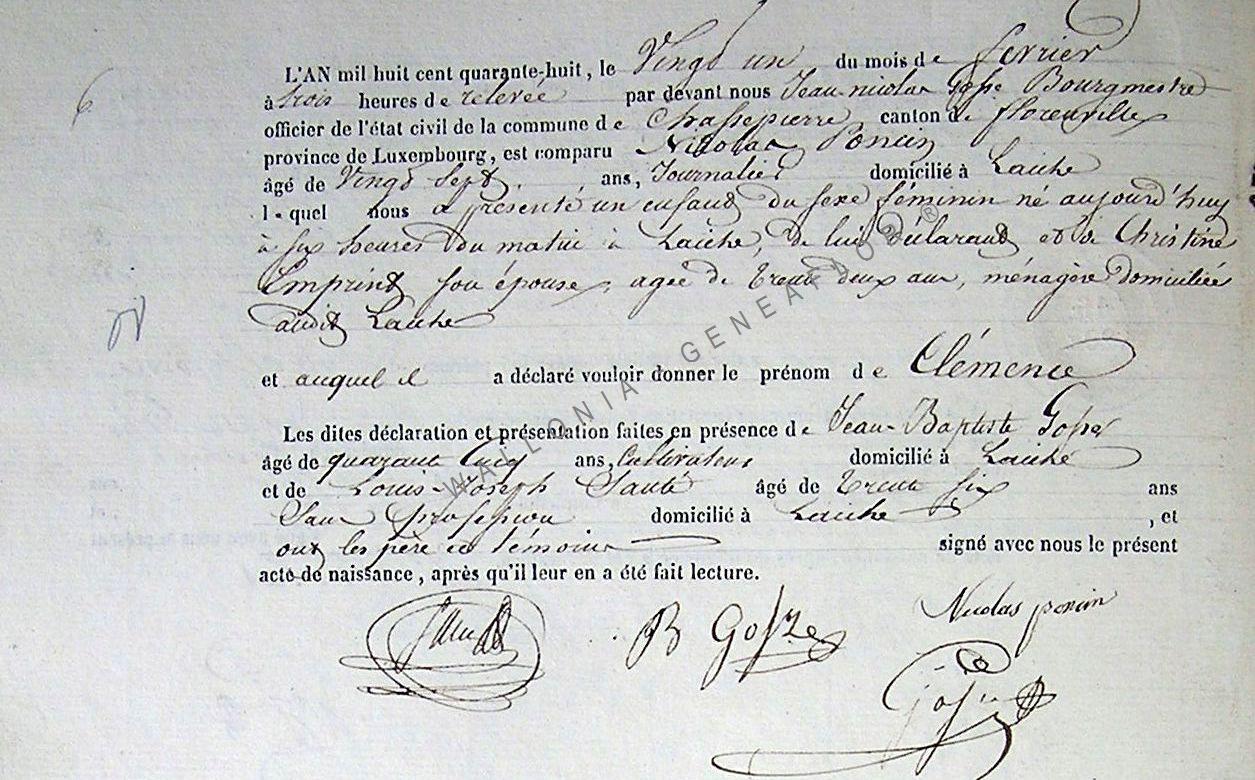 L'AN mil huit cent quarante-huit, le Vingt un du mois de fevrier
6 à trois heures de relevée par devant nous Jean nicolas Gosse Bourgmestre
officier de l'état civil de la commune de Chassepierre, canton de florenville
province de Luxembourg, est comparu Nicolas Poncin
âgé de Vingt Sept ans, Journalier domicilié à Laiche
lequel nous a présenté un enfant du sexe féminin né aujourd'huy
à six heures du matin à Laiche, de lui Déclarant et de Christine
Emprint son épouse, agée de trente deux ans, ménagère domiciliée
audit Laiche
et auquel il a déclaré vouloir donner le prénom de Clémence
Les dites déclaration et présentation faites en présence de Jean-Baptiste Gosse
âgé de quarant Cinq ans, Cultivateur domicilié à Laiche
et de Louis-Joseph Santé âgé de trente six ans
San profession domicilié à Laiche, et
ont les père et témoins signé avec nous le présent
acte de naissance, après qu'il leur en a été fait lecture.
B Gosse Nicolas poncin
WALLONIA GENEALOGY